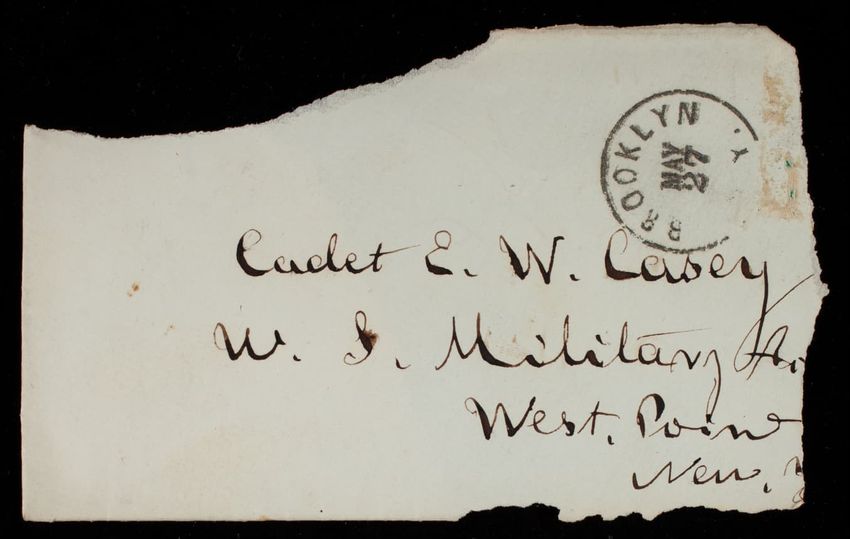 BROOKLYN Y
MAY
27
Cadet E. W. Casey
W. S. Military
West. Point
New.